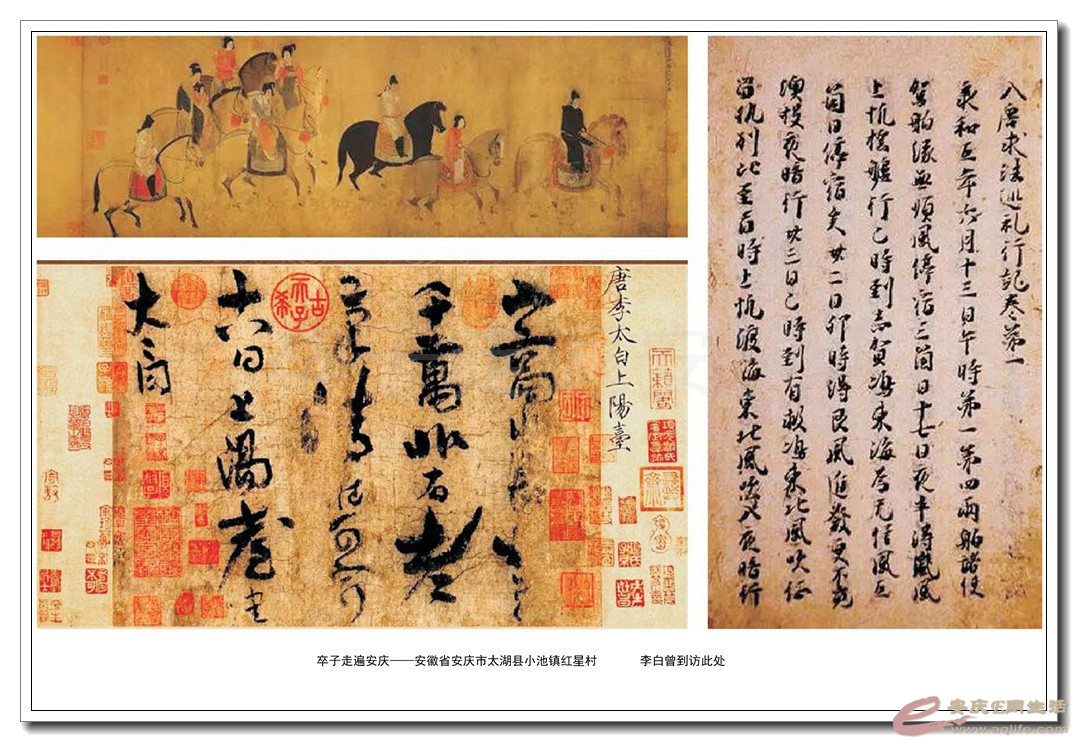 唐李太白上陽臺
山高水長物象
千萬非有老
筆清壯可窮
十八日上陽臺書
太白
入唐求法巡礼行記卷第一
承和五年六月十三日午時第一第四兩舶諸使
駕舶緣無順風停宿三箇日十七日夜半得嵐風
上帆搖艫行巳時到志賀嶋東海為无信風五
箇日停宿矣廿二日卯時得艮風進發更不覓
澳投夜暗行廿三日巳時到有救嶋東北風吹征
留執別比至酉時上帆渡海東北風吹入夜暗行
卒子走遍安庆——安徽省安庆市太湖县小池镇红星村 李白曾到访此处
安庆E网生活
www.aqlife.com